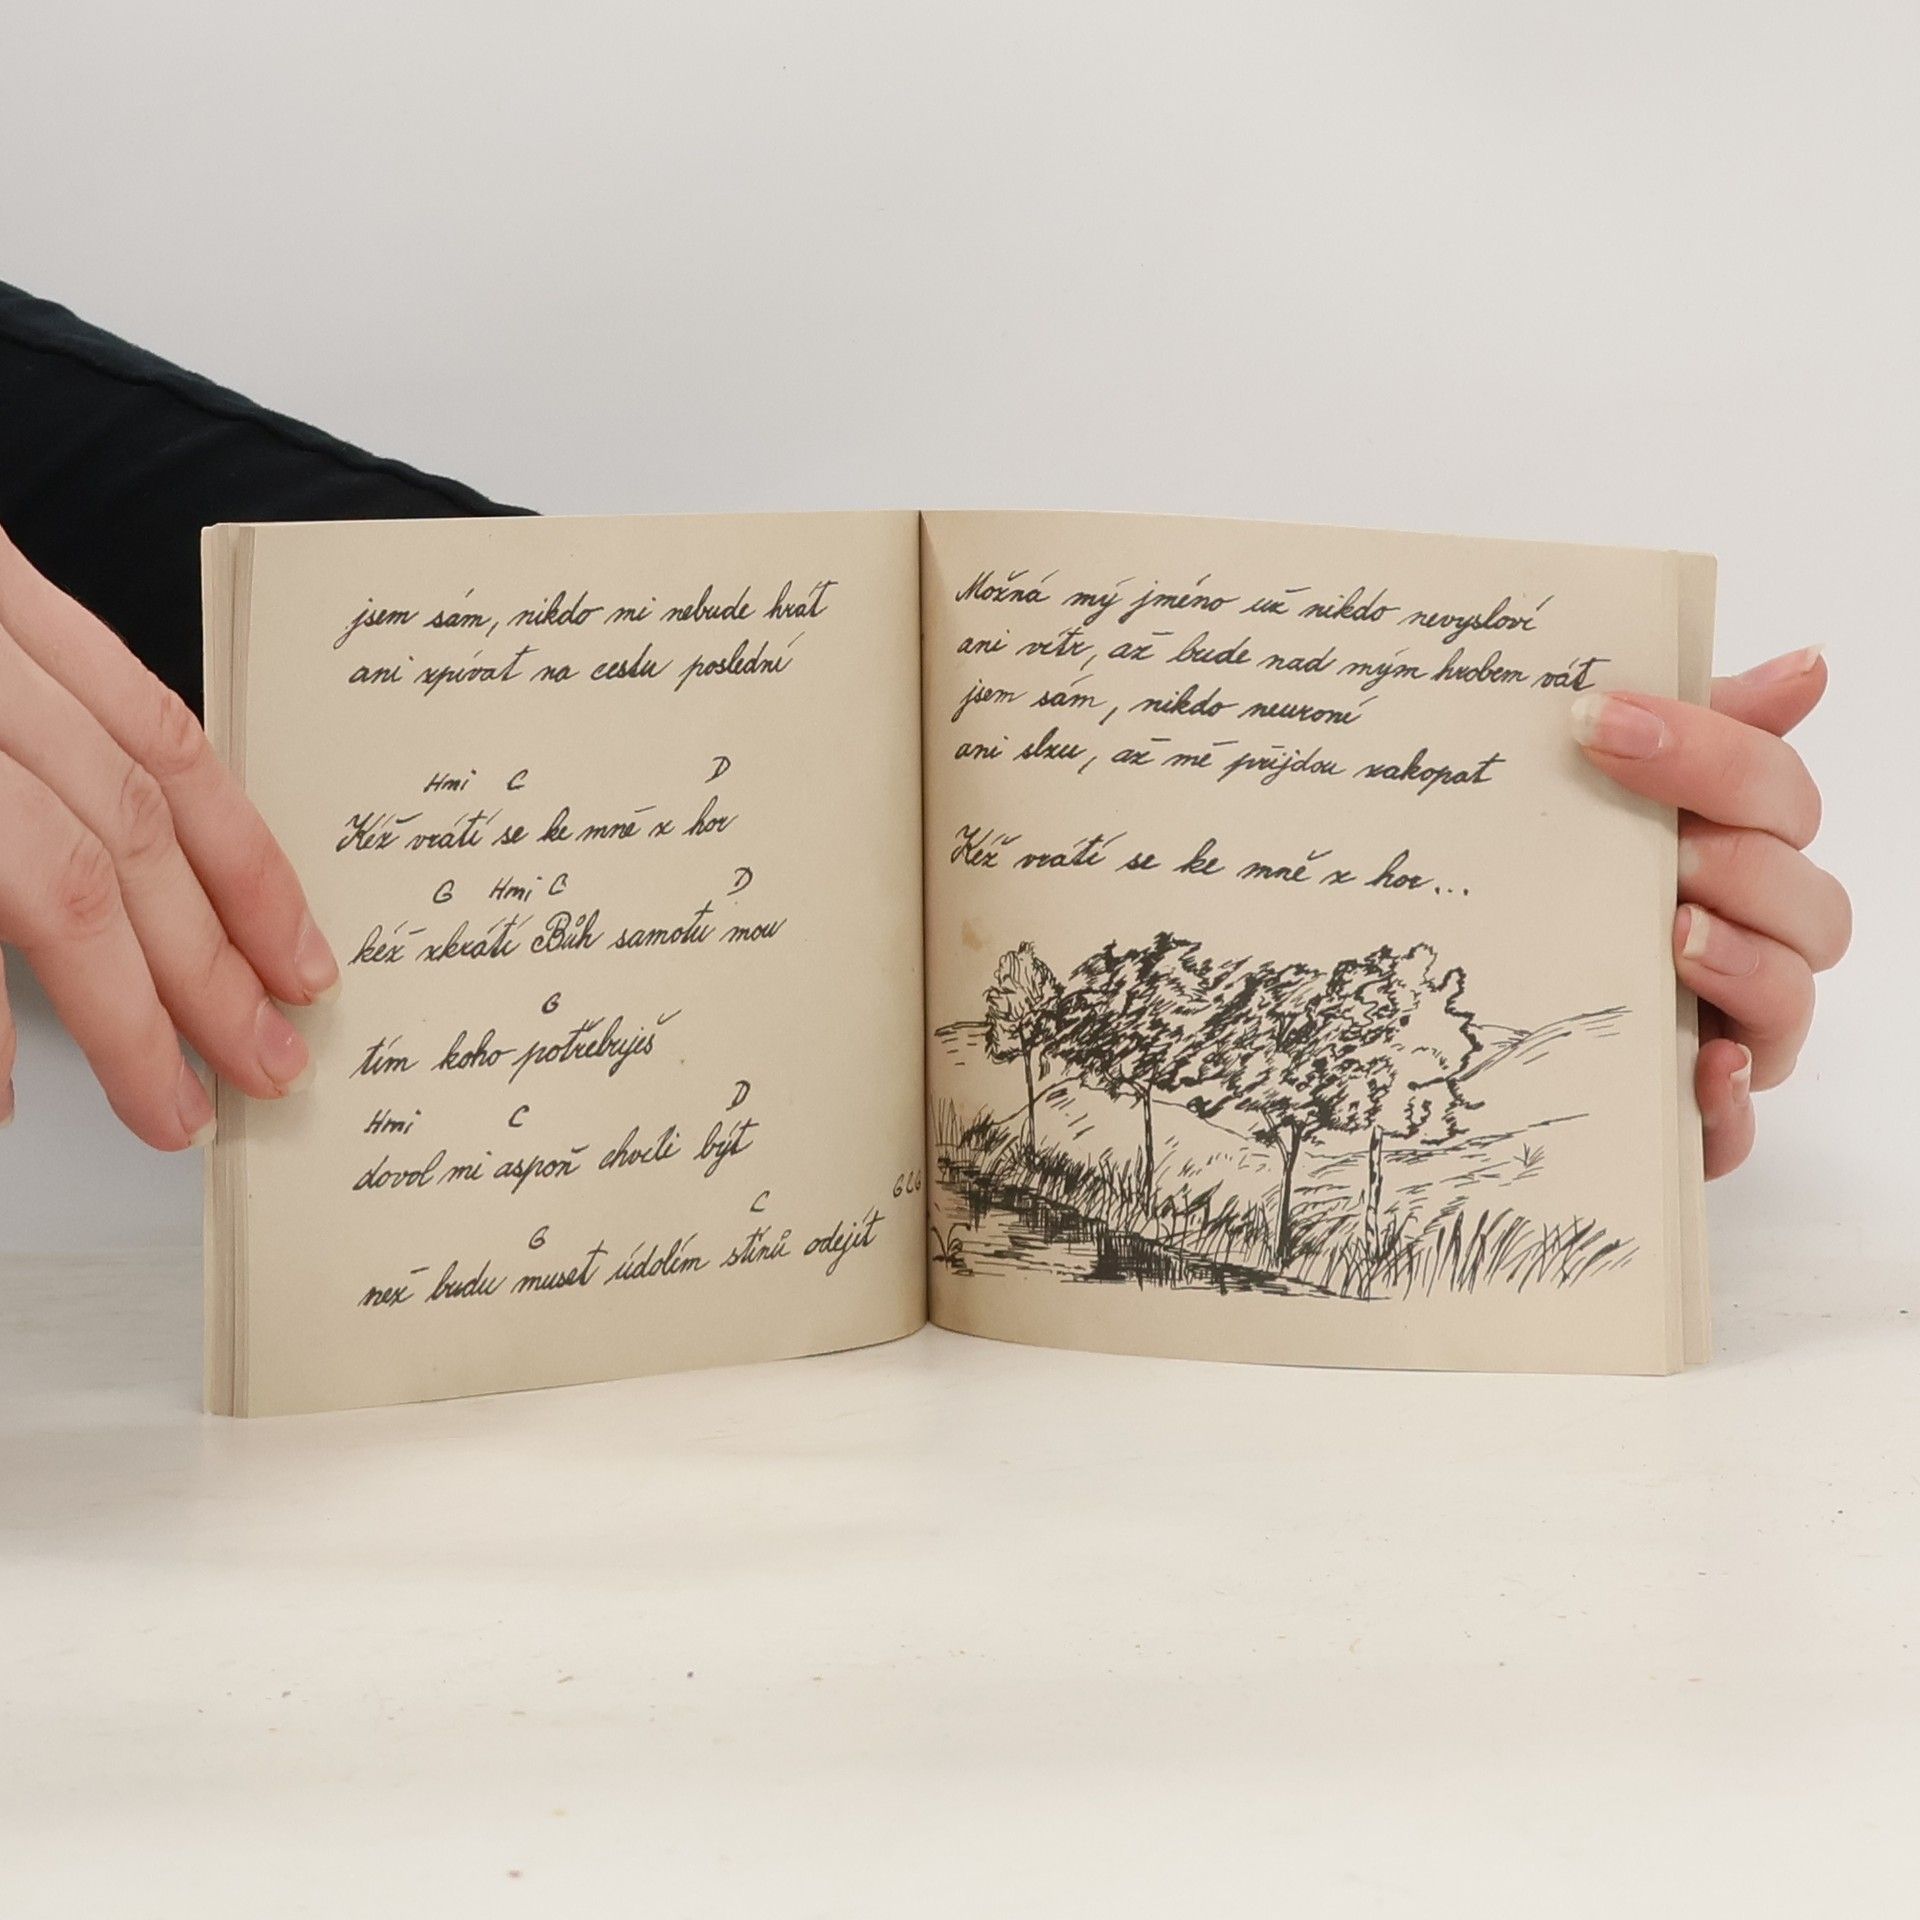 jsem sám, nikdo mi nebude hrát
ani zpívat na cestu poslední
Hmi C D
Kéž vrátí se ke mně z hor
G Hmi C D
kéž zkrátí Bůh samotu mou
G
tím koho potřebuješ
Hmi C D
dovol mi aspoň chvíli být
G C G C G
než budu muset údolím stínů odejít
Možná mý jméno už nikdo nevysloví
ani vítr, až bude nad mým hrobem vát
jsem sám, nikdo neuroní
ani slzu, až mě přijdou zakopat
Kéž vrátí se ke mně z hor...